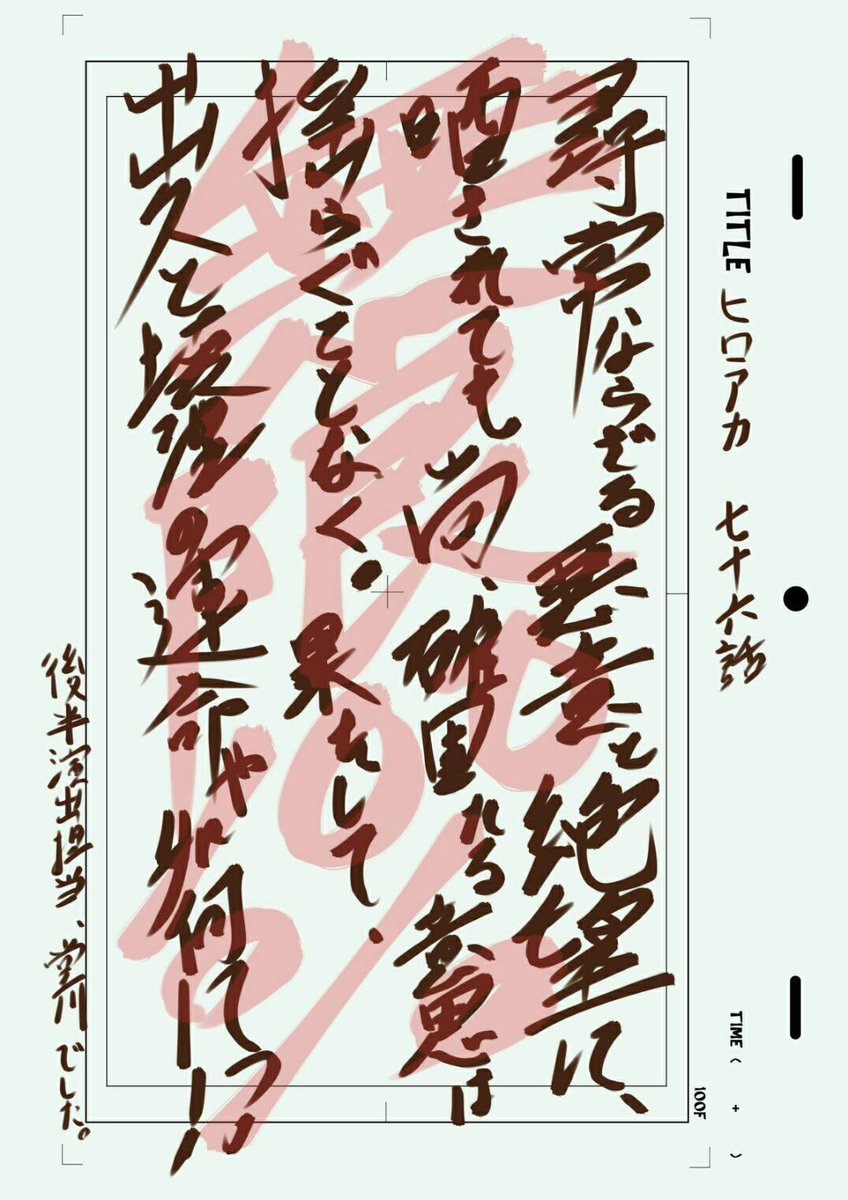 TITLE ヒロアカ 七十六話
TIME ( + )
100F
尋常ならざる悪意と絶望に、
晒されても尚、確固たる意思は
揺らぐことなく。果たして、
出久と壊理の運命や如何にーっ!?
無限100%
後半演出担当、堂川でした。